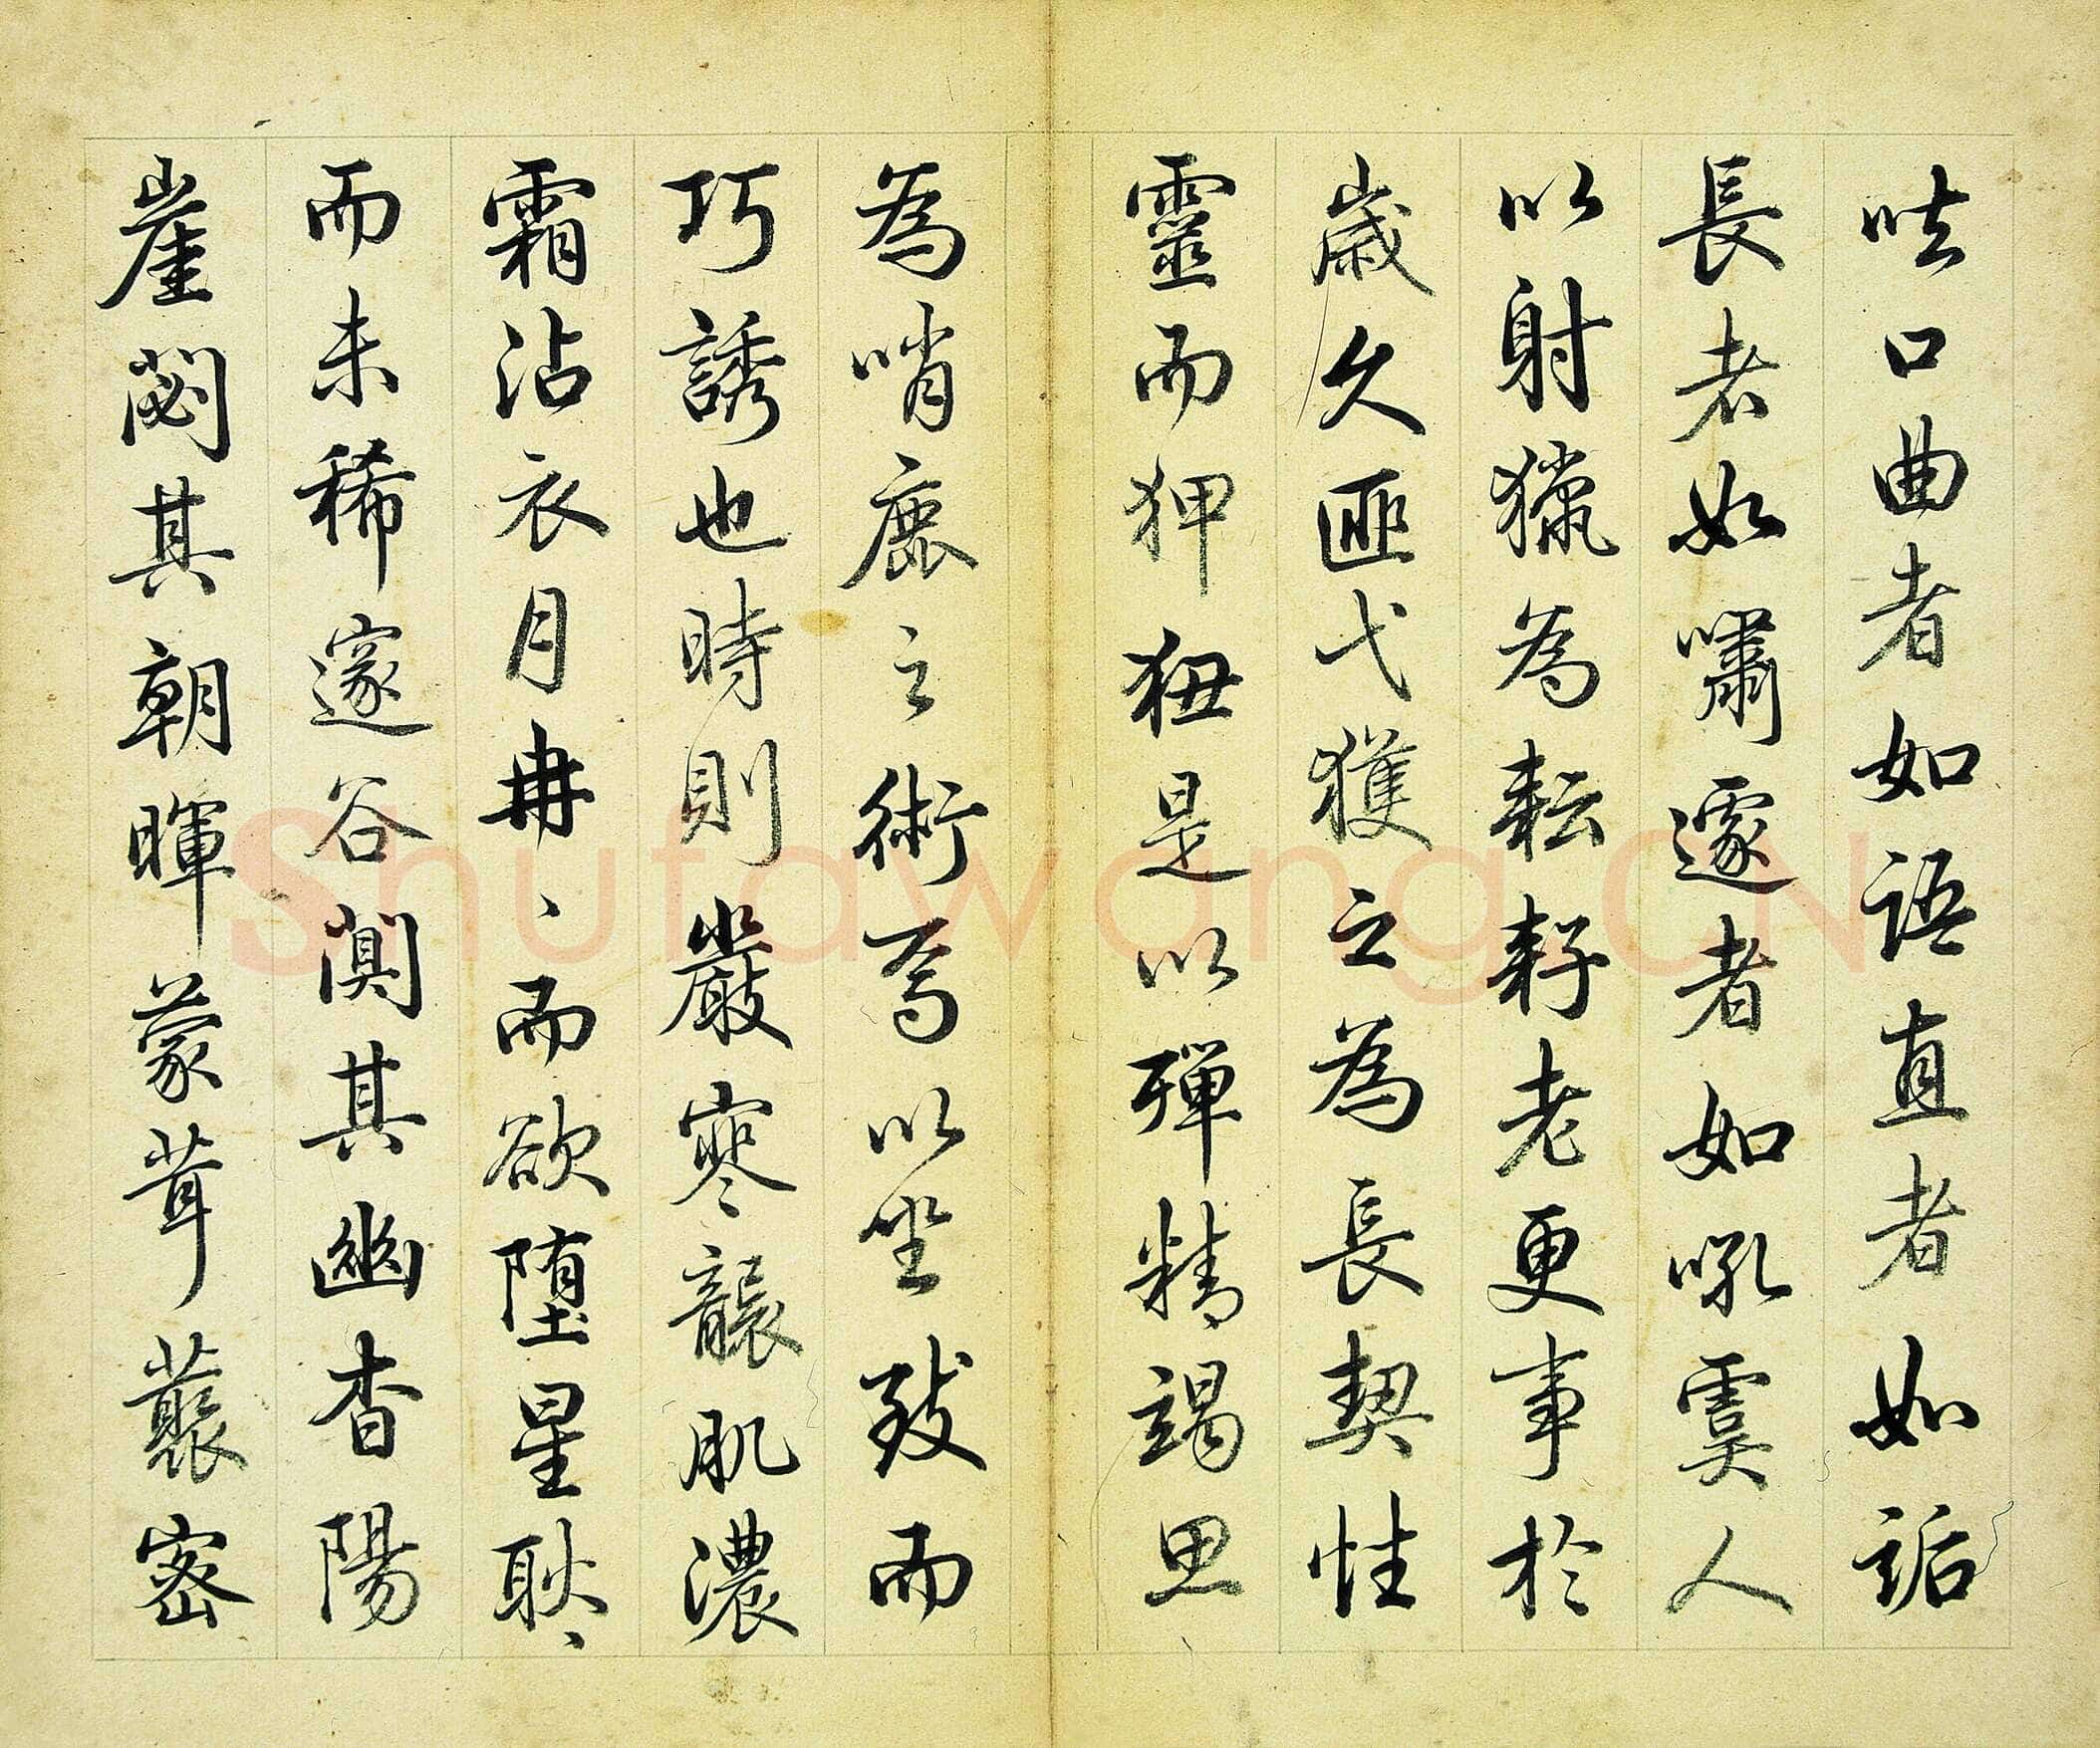 呿口曲者如語直者如詬
長者如嘯邃者如吼虞人
以射獵為耘耔老更事於
嵗久匪弋獲之為長契性
靈而狎狃是以殫精竭思
為哨鹿之術焉以坐致而
巧誘也時則巖寒襲肌濃
霜沾衣月冉、而欲墮星耿、
而未稀邃谷闃其幽杳陽
崖閟其朝暉蒙茸叢密
Shufawang.CN